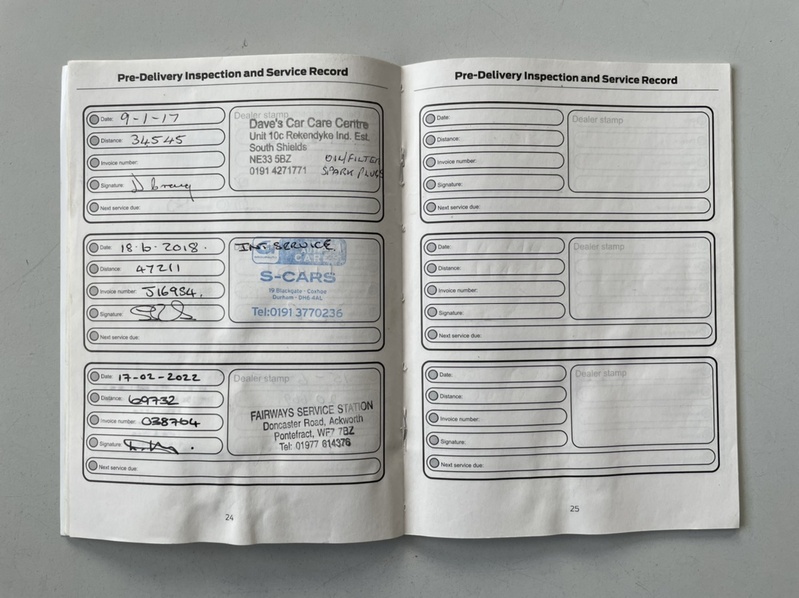 Pre-Delivery Inspection and Service Record
Date: 9-1-17
Distance: 34545
Invoice number:
Signature:
Next service due:
Dealer stamp
Dave's Car Care Centre
Unit 10c Rekendyke Ind. Est.
South Shields
NE33 5BZ
0191 4271771
OIL/FILTER
SPARK PLUGS
Date: 18.6.2018.
Distance: 47211
Invoice number: J16984.
Signature:
Next service due:
INT. SERVICE
CARE
S-CARS
19 Blackgate - Coxhoe
Durham - DH6 4AL
Tel:0191 3770236
Date: 17-02-2022
Distance: 69732
Invoice number: 038764
Signature:
Next service due:
Dealer stamp
FAIRWAYS SERVICE STATION
Doncaster Road, Ackworth
Pontefract, WF7 7BZ
Tel: 01977 614376
24
Pre-Delivery Inspection and Service Record
Date:
Distance:
Invoice number:
Signature:
Next service due:
Dealer stamp
Date:
Distance:
Invoice number:
Signature:
Next service due:
Dealer stamp
Date:
Distance:
Invoice number:
Signature:
Next service due:
Dealer stamp
25